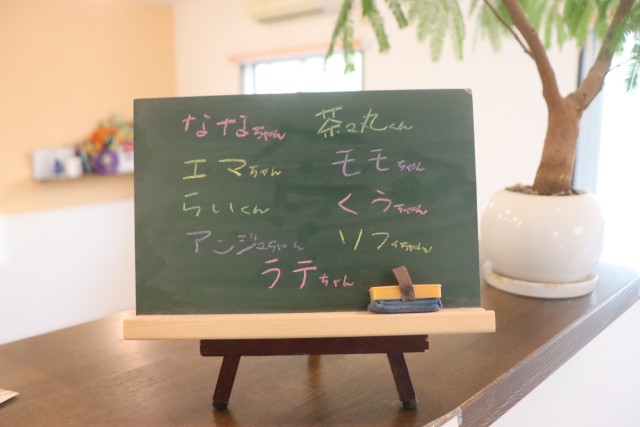 ななちゃん 茶々丸くん
エマちゃん モモちゃん
らいくん くうちゃん
アンジュちゃん ソフィちゃん
ラテちゃん